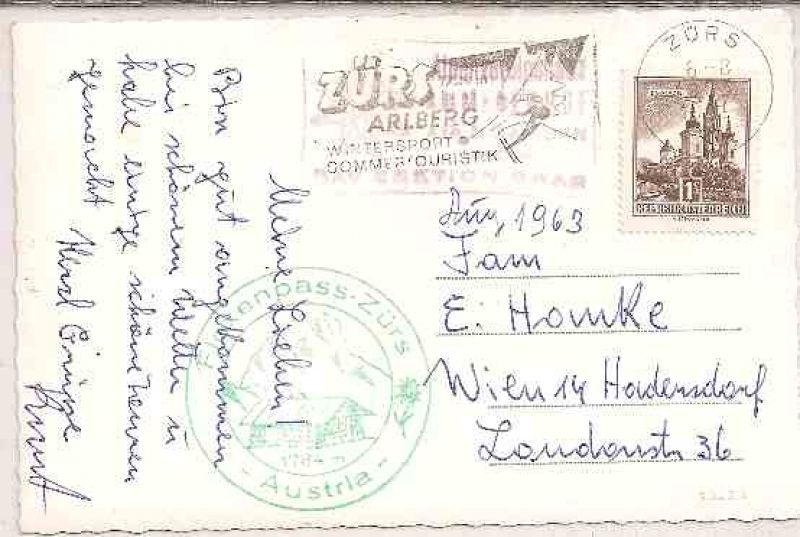 Meine Lieben!
Bin gut angekommen
bei schönem Wetter u
habe einige schöne Touren
gemacht Herzl Grüsse
ZÜRS
ARLBERG
WINTERSPORT
SOMMERTOURISTIK
ZÜRS
REPUBLIK ÖSTERREICH
Aug, 1963
Fam
E. Homke
Wien 14 Hadersdorf
Landonstr. 36
Flexenpass-Zürs
Austria